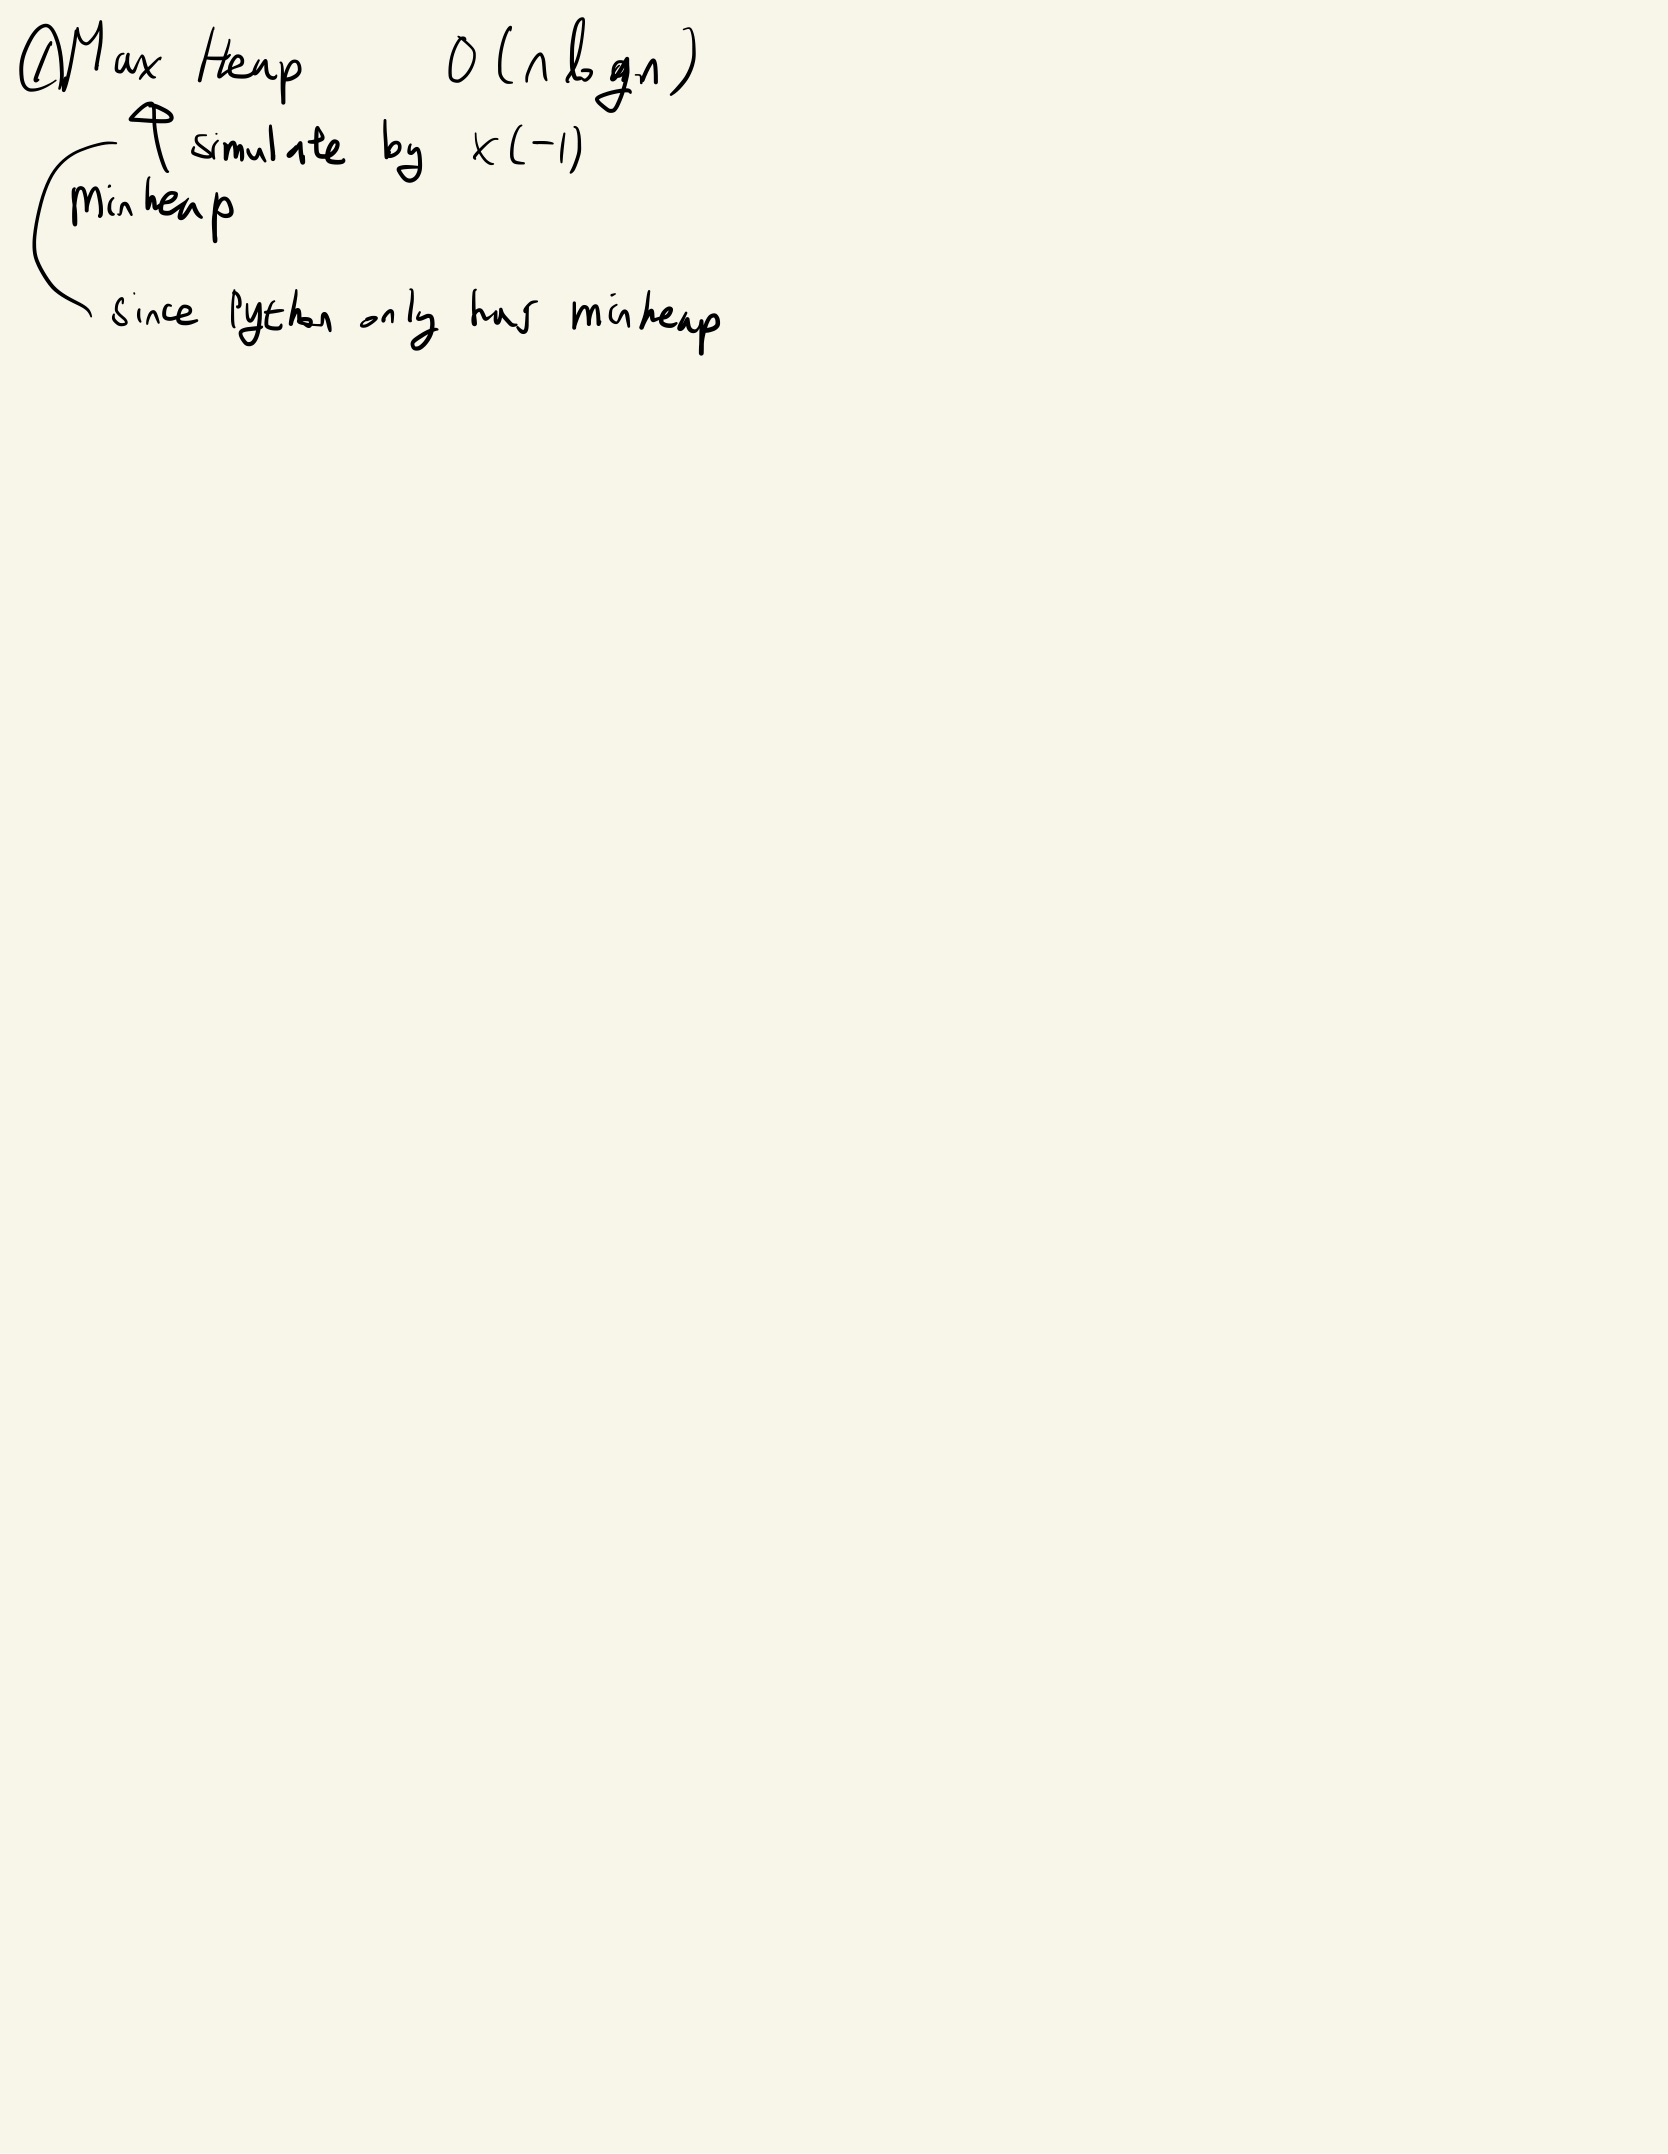 ① Max Heap O(n log n)
simulate by x(-1)
Minheap
since Python only has minheap